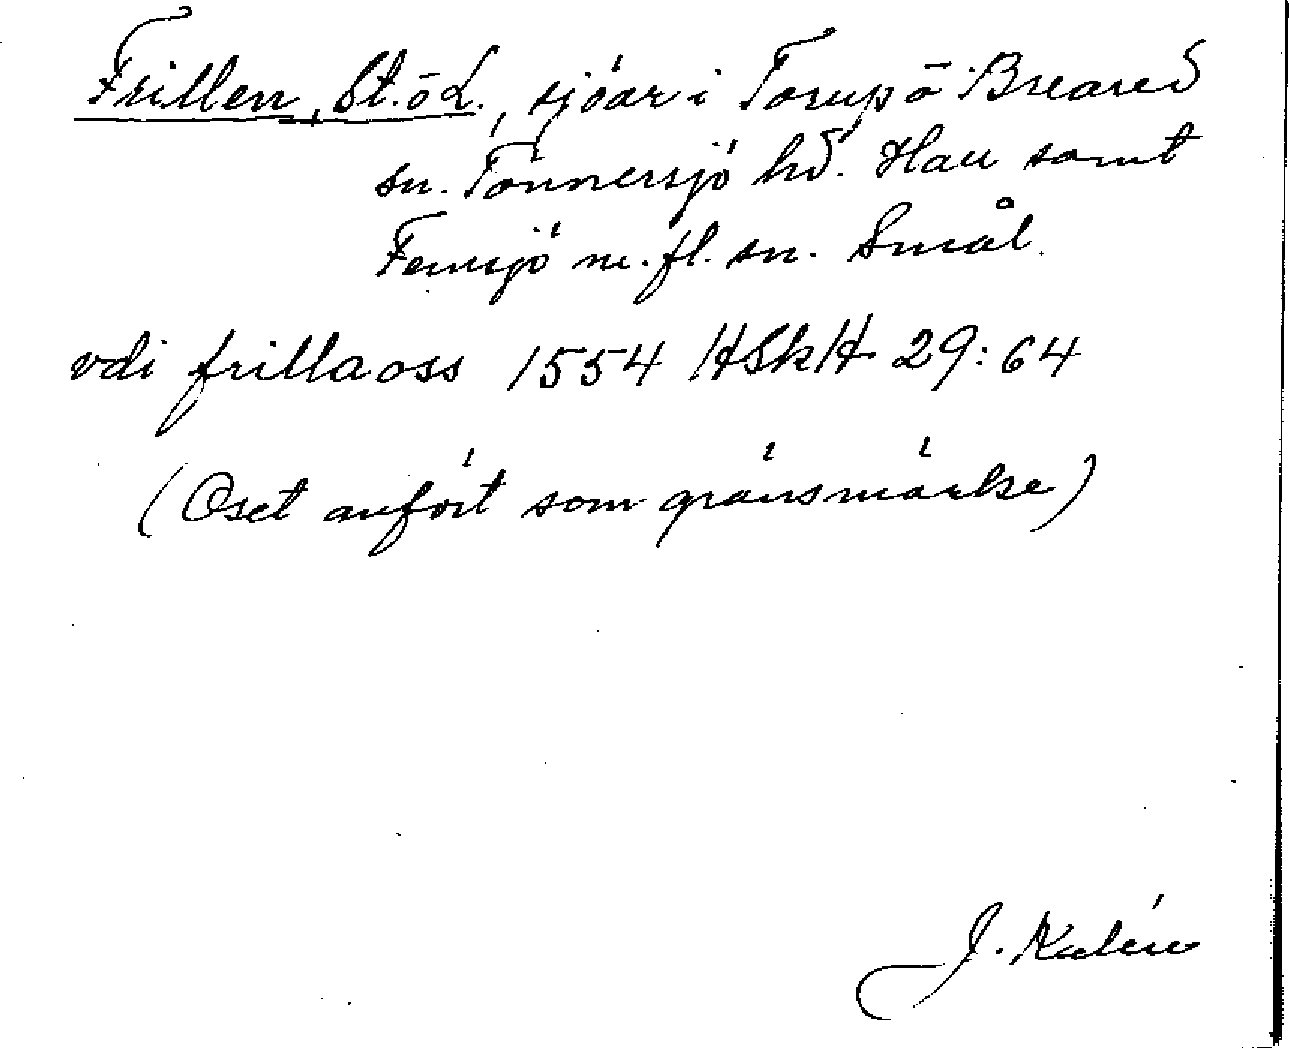 Frillen, St. ō L., sjöar i Torup ō Breared
sn. Tönnersjö hd. Hall samt
Femsjö m. fl. sn. Smål.
vdi frillaoss 1554 HSkH 29:64
(Oset anfört som gränsmärke)
J. Kalén